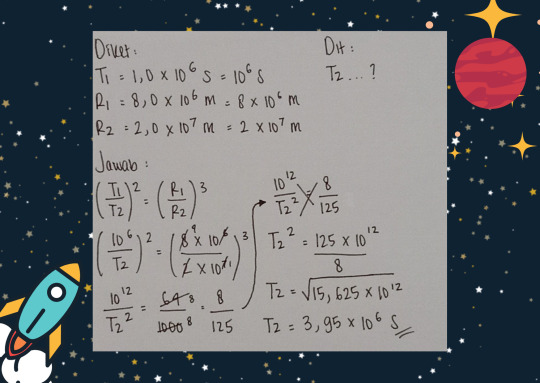 Diket:
T₁ = 1,0 x 10⁶ s = 10⁶ s
R₁ = 8,0 x 10⁶ m = 8 x 10⁶ m
R₂ = 2,0 x 10⁷ m = 2 x 10⁷ m
Dit:
T₂ ... ?
Jawab:
(T₁/T₂)² = (R₁/R₂)³
(10⁶/T₂)² = (8⁴ x 10⁶/2 x 10⁷¹)³
10¹²/T₂² = 64 8/1000 8 = 8/125
10¹²/T₂² = 8/125
T₂² = 125 x 10¹²/8
T₂ = √15,625 x 10¹²
T₂ = 3,95 x 10⁶ s